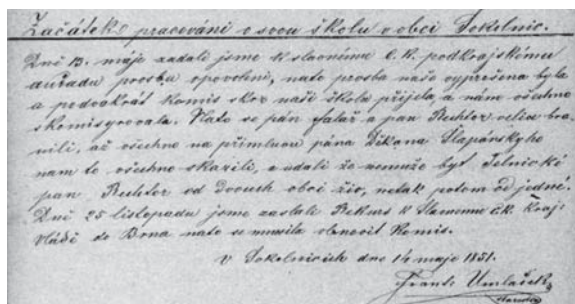 Začátek pracování o svou školu v obci Sokelnic.
Dně 13. máje zadali jsme k slavnému C. K. podkrajskému
auřadu prosbu o povolení, nato prosba naše vypršena byla
a podvakrát komis skrz naší školu přijela a nám všechno
skomisyrovala. Nato se pán falář a pan Rechtor velice bra-
nili, až všechno na přímluvu pána Děkana Šlapánskyho
nam to všechno skazili, a udali že nemuže byt Telnické
pan Rechtor od Dvouch obcí živ, netak potom od jedné.
Dně 25 listopadu jsme zaslali Rekurs k Slavnemu c.k. Kraj.
Vládě do Brna nato se musila obnovit komis.
V Sokelnicich dne 14 maje 1851.
Frant. Umlášek,
starosta